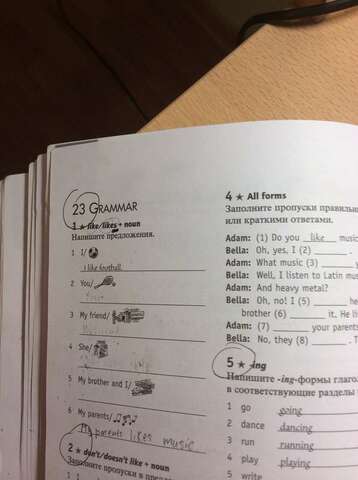 23 GRAMMAR
1 ★ like/likes + noun
Напишите предложения.
1 I/
I like football.
2 You/
3 My friend/
4 She/
5 My brother and I/
6 My parents/
My parents likes music
2 ★ don't/doesn't like + noun
Заполните пропуски в пред
4 ★ All forms
Заполните пропуски правильн
или краткими ответами.
Adam: (1) Do you like music
Bella: Oh, yes, I (2)
Adam: What music (3) y
Bella: Well, I listen to Latin mus
Adam: And heavy metal?
Bella: Oh, no! I (5) he
brother (6) it. He li
Adam: (7) your parents
Bella: No, they (8) . T
5 ★ -ing
Напишите -ing-формы глаго
в соответствующие разделы
1 go going
2 dance dancing
3 run running
4 play playing
5 write